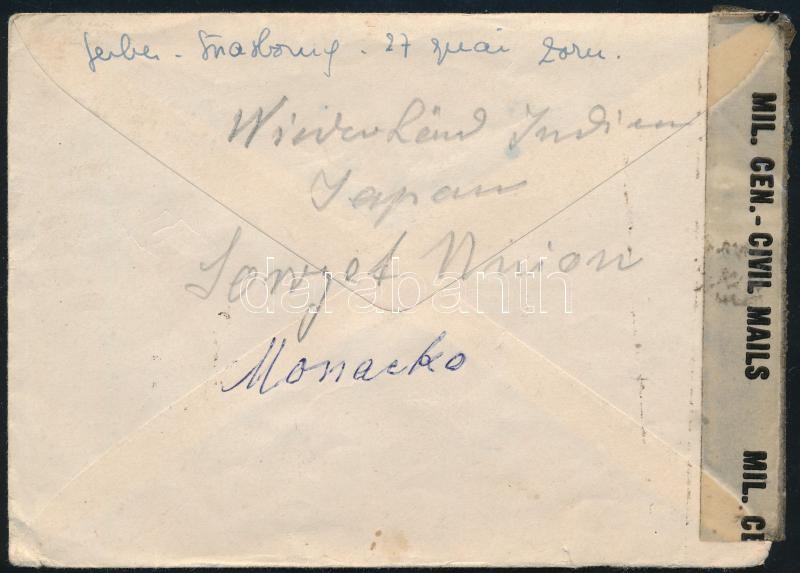 Gerber - Strasbourg - 27 quai Zorn.
Niederländ Indien
Japan
Sowjet Union
Monacko
darabanth
S
MIL. CEN.- CIVIL MAILS
MIL. CE